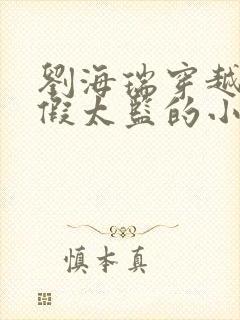 劉海瑞穿越
假太監的小
慎本真